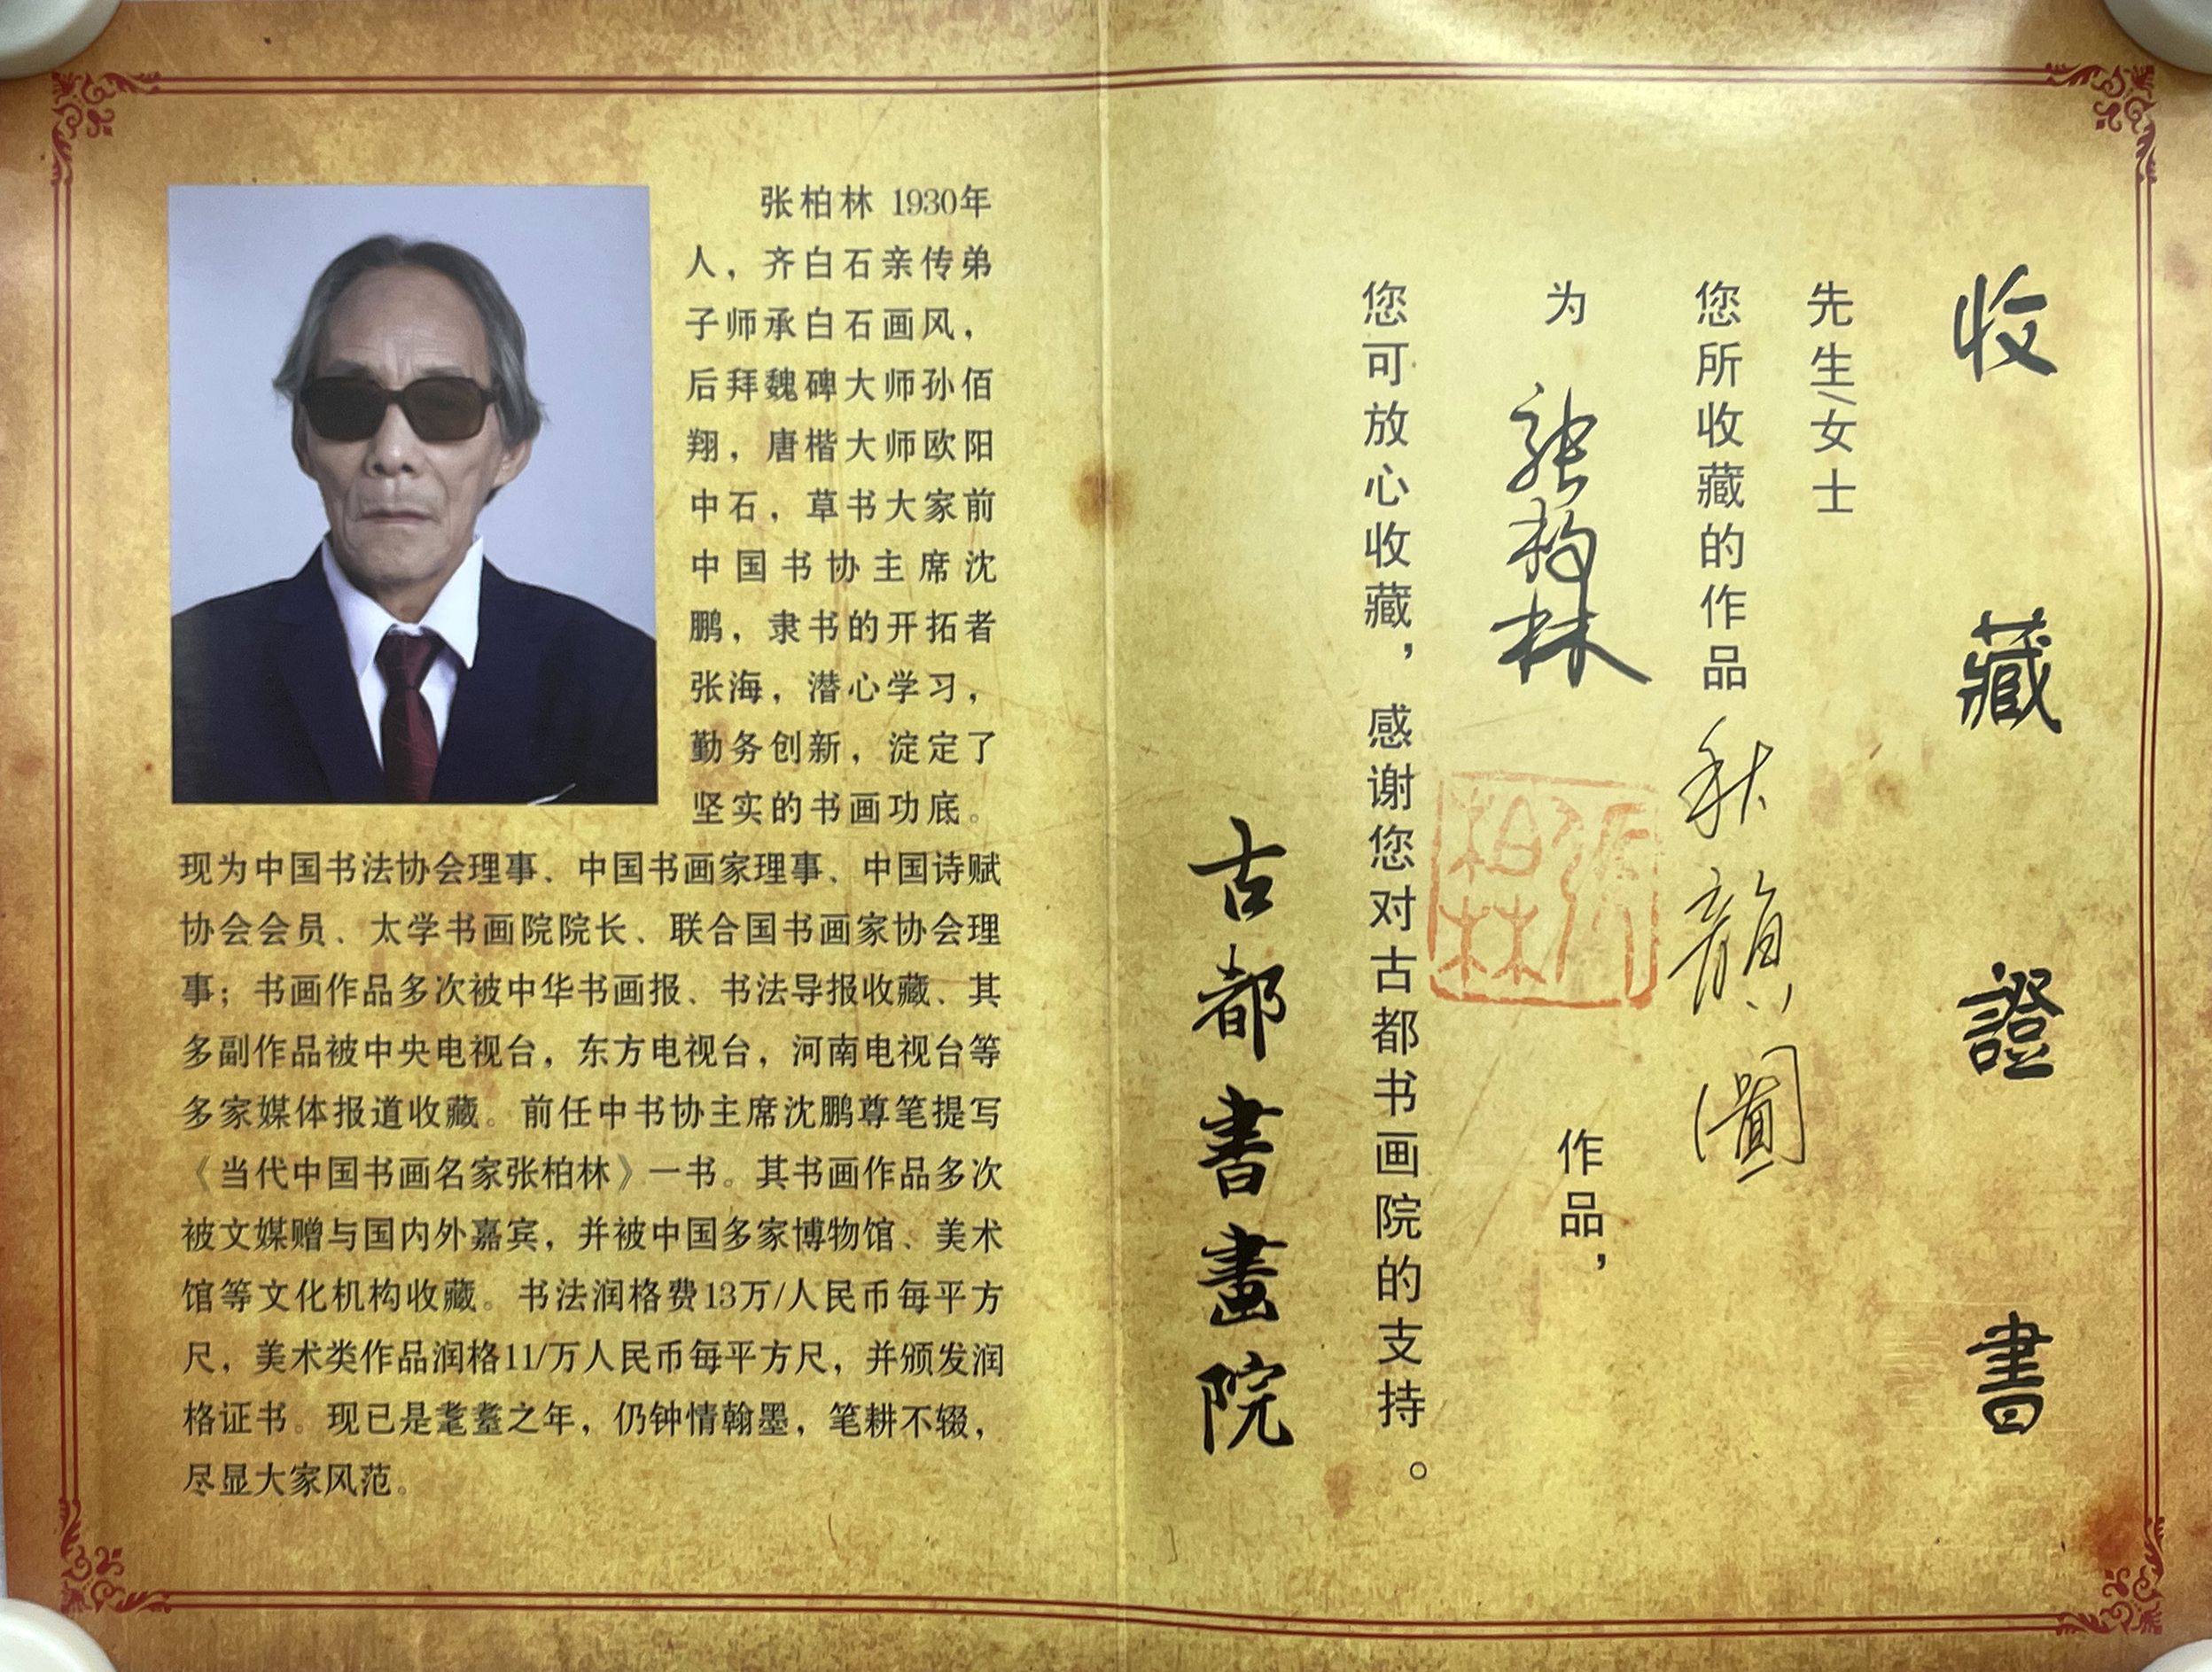 张柏林 1930年
人，齐白石亲传弟
子师承白石画风，
后拜魏碑大师孙佰
翔，唐楷大师欧阳
中石，草书大家前
中国书协主席沈
鹏，隶书的开拓者
张海，潜心学习，
勤务创新，淀定了
坚实的书画功底。
现为中国书法协会理事、中国书画家理事、中国诗赋
协会会员、太学书画院院长、联合国书画家协会理
事；书画作品多次被中华书画报、书法导报收藏、其
多副作品被中央电视台，东方电视台，河南电视台等
多家媒体报道收藏。前任中书协主席沈鹏尊笔提写
《当代中国书画名家张柏林》一书。其书画作品多次
被文媒赠与国内外嘉宾，并被中国多家博物馆、美术
馆等文化机构收藏。书法润格费13万/人民币每平方
尺，美术类作品润格11/万人民币每平方尺，并颁发润
格证书。现已是耄耋之年，仍钟情翰墨，笔耕不辍，
尽显大家风范。
收藏證書
先生/女士
您所收藏的作品秋韻圖
为张柏林作品，
您可放心收藏，感谢您对古都书画院的支持。
古都書畫院
张柏林